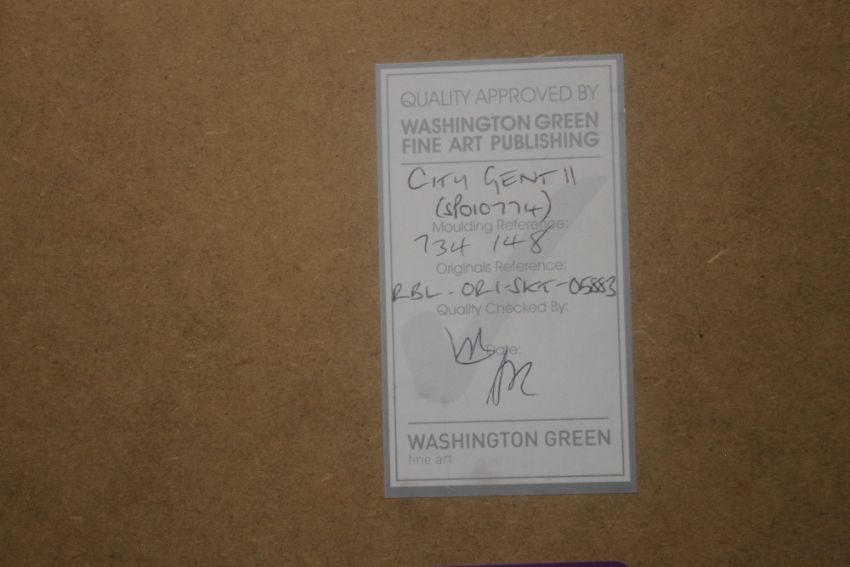 QUALITY APPROVED BY
WASHINGTON GREEN
FINE ART PUBLISHING
CITY GENT II
(SP010774)
Moulding Reference:
734 148
Originals Reference:
RBL-ORI-SKT-05883
Quality Checked By:
Date:
WASHINGTON GREEN
fine art